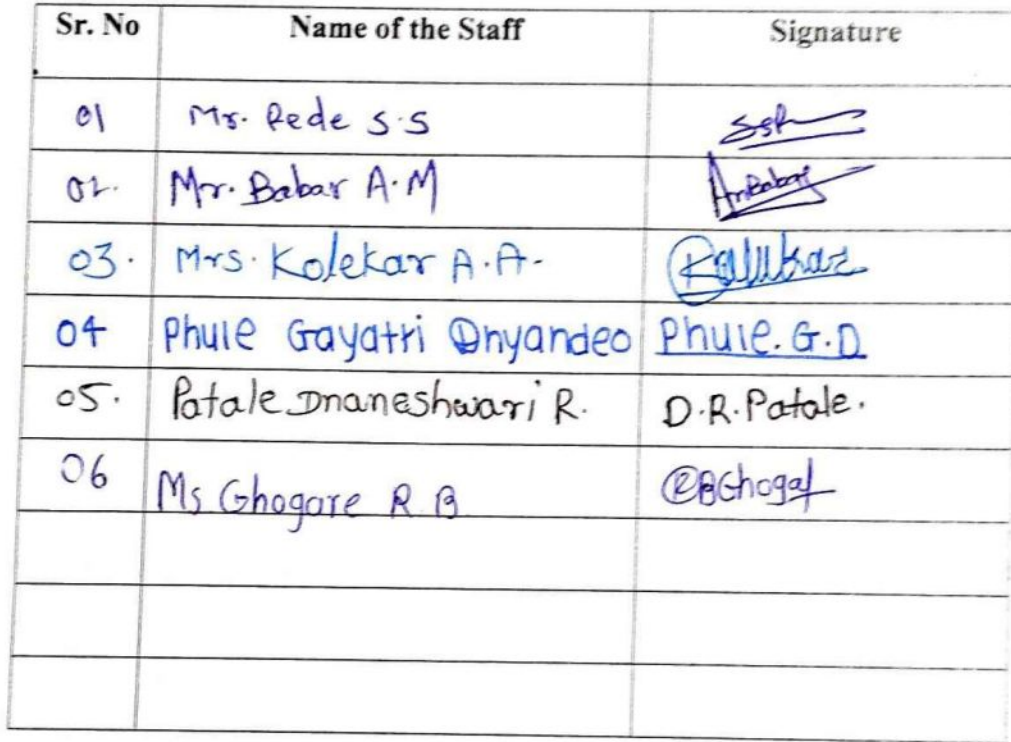 Sr. No Name of the Staff Signature
01 Mr. Rede S.S SSR
02. Mr. Babar A.M AmBabar
03. Mrs. Kolekar A.A.
04 Phule Gayatri Dnyandeo Phule.G.D
05. Patale Dnaneshwari R. D.R.Patale.
06 Ms Ghogare R B RBGhogar